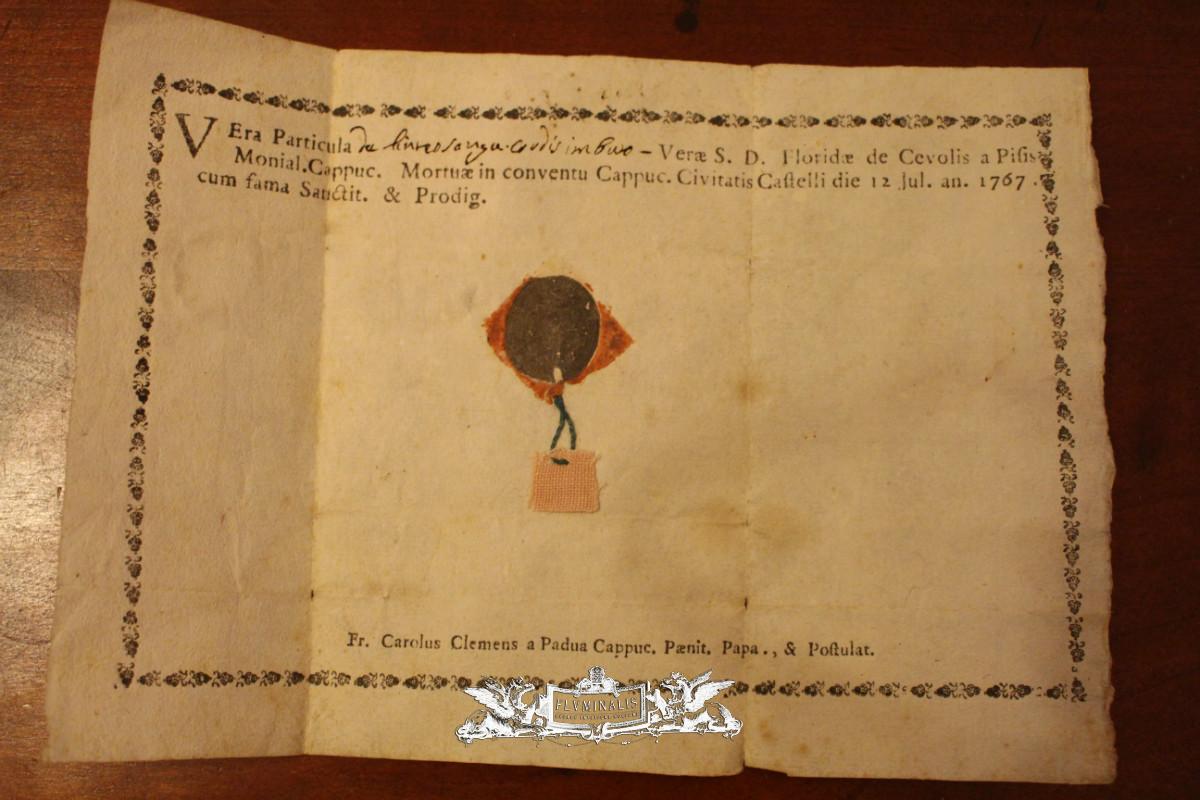 VEra Particula de linteo sangu. cordis imbuto – Veræ S. D. Floridæ de Cevolis a Pisis
Monial. Cappuc. Mortuæ in conventu Cappuc. Civitatis Castelli die 12 Jul. an. 1767.
cum fama Sanctit. & Prodig.
Fr. Carolus Clemens a Padua Cappuc. Pænit. Papa., & Postulat.
FLVMINALIS